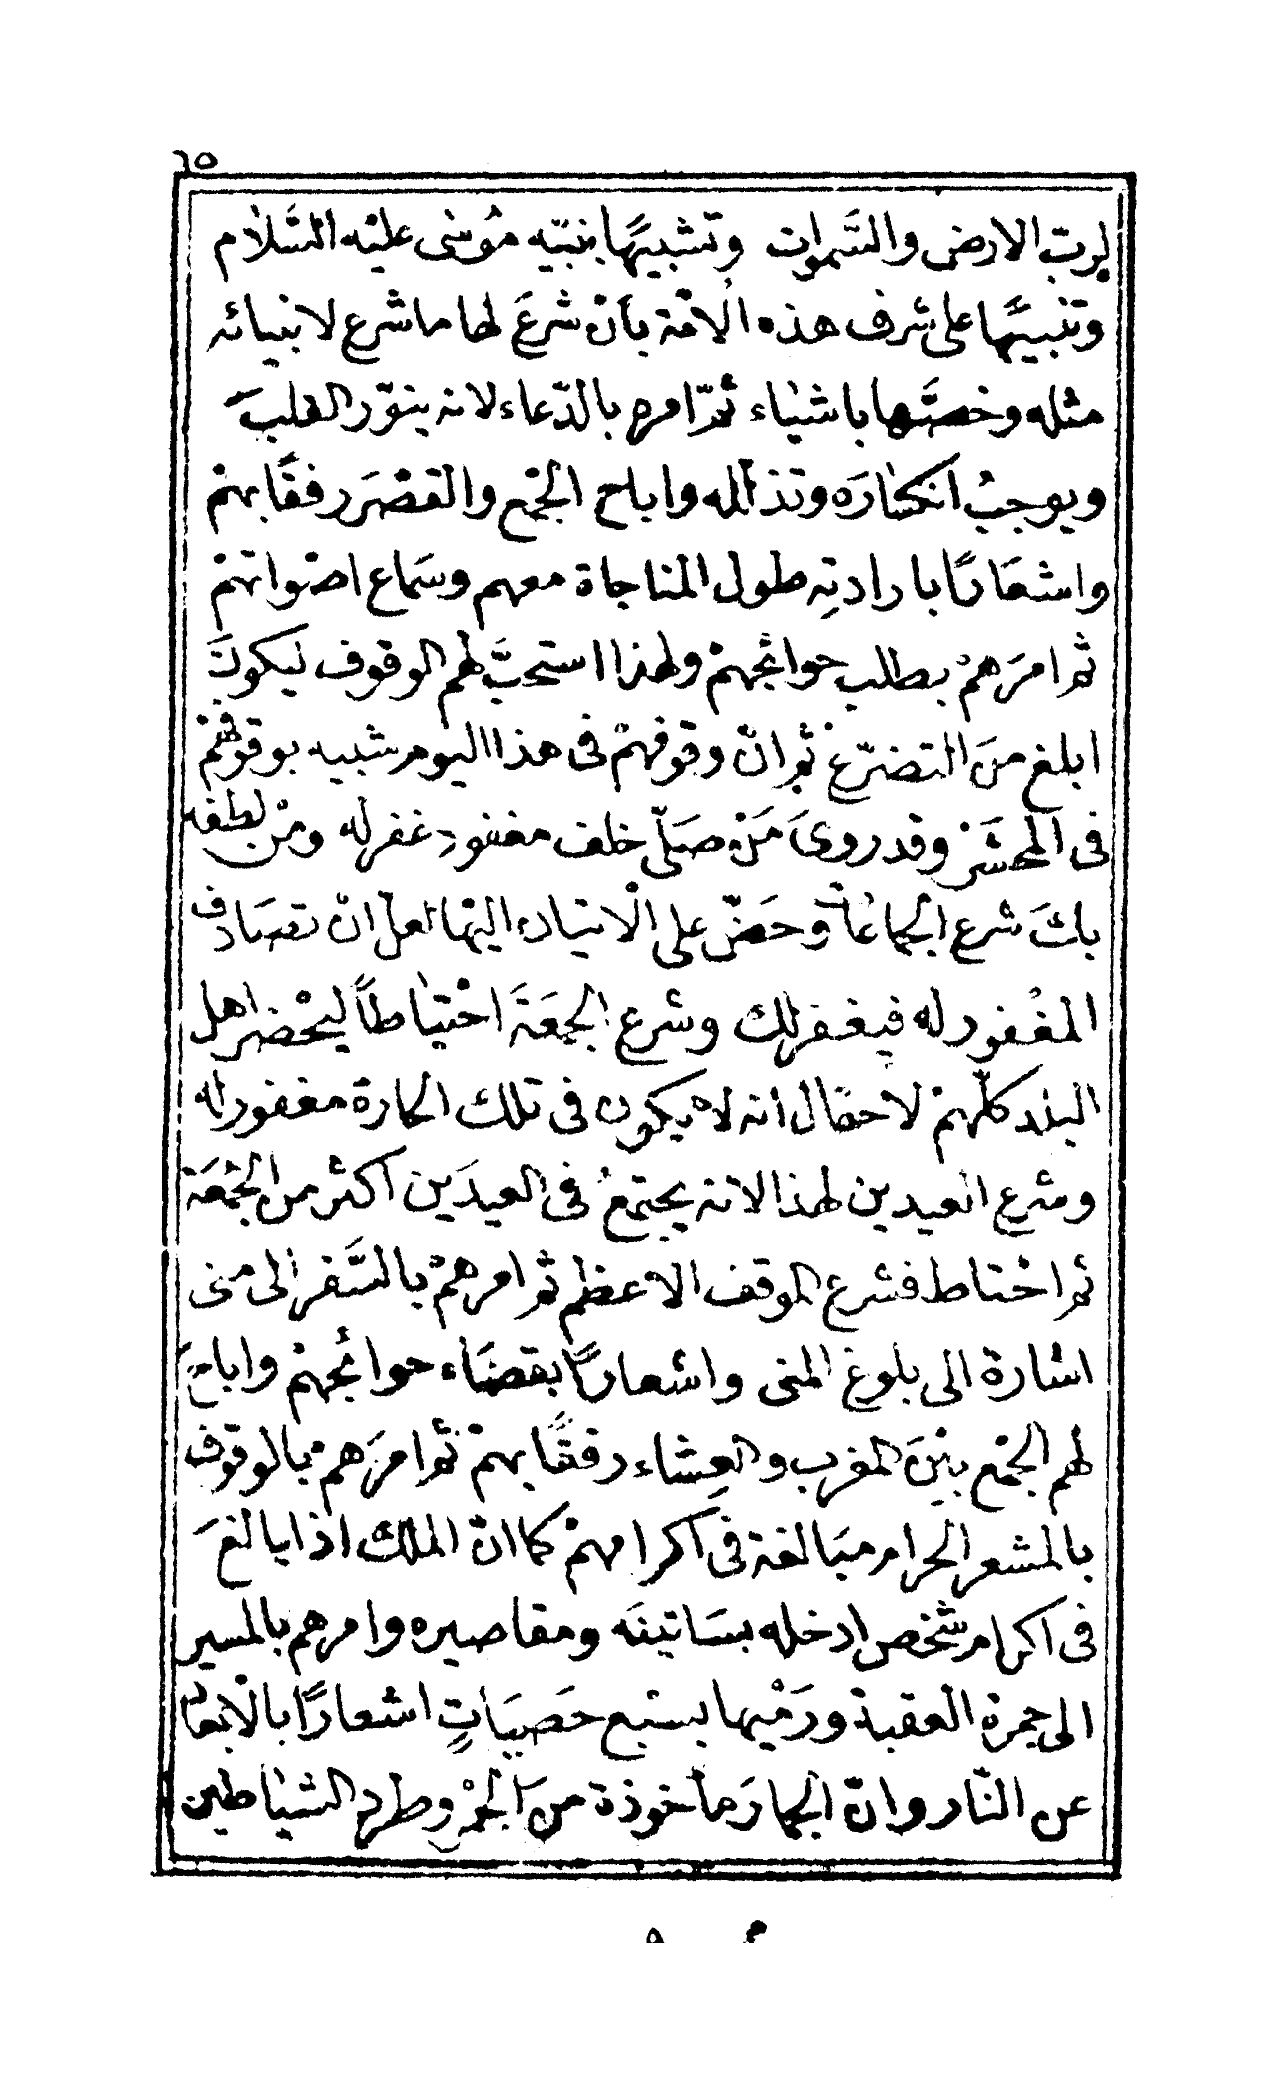 ٦٥
لربّ الارض والسَّموات وتشبيهًا بنبيّه مُوسٰى عليْه السَّلام
وتنبيهًا على شرف هذه الاُمّة بأنْ شرعَ لها ما شرع لانبيائه
مثله وخصَّها باشيٰاء ثمّ امرهم بالدّعاء لانه ينوّر القلبَ
ويوجبُ انكسٰارَه وتذلّله واباح الجمْع والقصْرَ رفقًا بهمْ
واشعَارًا بارادتِه طول المناجاة معهم وسَماع اصْواتهمْ
ثم امرَهمْ بطلب حوائجهمْ ولهذا استحبَّ لهم الوقوف ليكونَ
ابلغ منَ التضرّع ثم انّ وقوفهمْ فى هذا اليوم شبيه بوقوفهمْ
فى المحشَرْ وقد روىَ مَنْ صَلّى خلف مغفورٍ غفر له ومنْ لطفه
بك شرع الجمَاعَاتْ وحَضّ على الْاتيان اليْها لعلّ انْ تصَادف
المغْفور له فيغفر لك وشرع الجمعَةَ احْتيٰاطاً ليحْضر اهل
البلد كلّهمْ لاحتمال انه لا يكون فى تلك الحارة مغفور له
وشرع العيدين لهذا لانه يجتمعُ فى العيدَين اكثر من الجُمعَة
ثم احْتاط فشرع الموقف الاعظم ثم امرهمْ بالسَّفر الى منى
اشارة الى بلوغ المنى واشعارًا بقضَاء حوائجهمْ واباحَ
لهم الجمْع بيْنَ المغرب والعِشاء رفقًا بهمْ ثم امرَهم بالوقوف
بالمشعر الحرام مبَالغة فى اكرامهمْ كما انّ الملك اذا بالغَ
فى اكرام شخص ادخله بسَاتينَه ومقاصيره وامرهم بالمسير
الى جمرة العقبة ورَمْيها بسبْع حَصَيَاتٍ اشعارًا بالْابعاد
عن النّار وانّ الجمار مأخوذة منَ الجمْر وطردِ الشيٰاطين